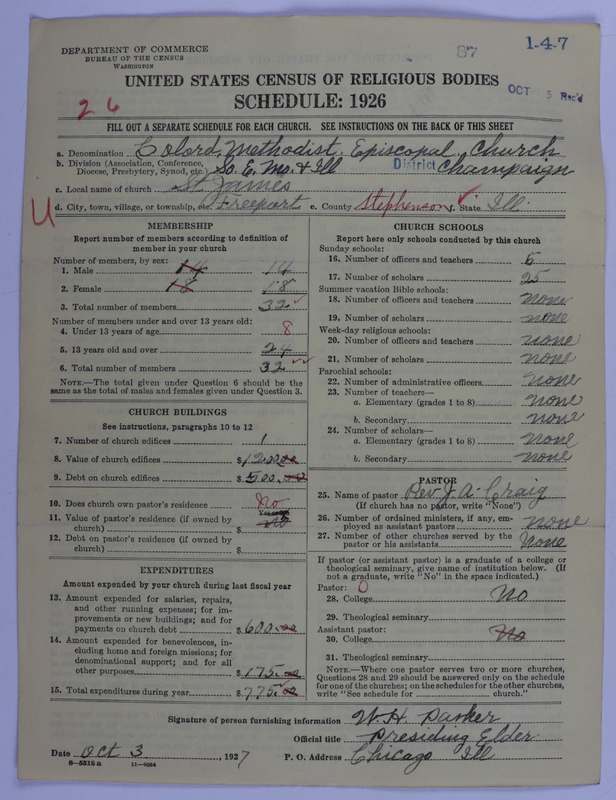 DEPARTMENT OF COMMERCE
BUREAU OF THE CENSUS
WASHINGTON
87
1-4-7
UNITED STATES CENSUS OF RELIGIOUS BODIES
SCHEDULE: 1926
26
OCT 5 Rec'd
FILL OUT A SEPARATE SCHEDULE FOR EACH CHURCH. SEE INSTRUCTIONS ON THE BACK OF THIS SHEET
a. Denomination Colord Methodist Episcopal Church
b. Division (Association, Conference, Diocese, Presbytery, Synod, etc.) So. E. Mo. & Ill District Champaign
c. Local name of church St. James
U
d. City, town, village, or township, etc. Freeport e. County Stephenson f. State Ill.
MEMBERSHIP
Report number of members according to definition of member in your church
Number of members, by sex:
1. Male 14 14
2. Female 18 18
3. Total number of members 32
Number of members under and over 13 years old:
4. Under 13 years of age 8
5. 13 years old and over 24
6. Total number of members 32
NOTE.—The total given under Question 6 should be the same as the total of males and females given under Question 3.
CHURCH BUILDINGS
See instructions, paragraphs 10 to 12
7. Number of church edifices 1
8. Value of church edifices $1200.00
9. Debt on church edifices $500.00
10. Does church own pastor's residence No
11. Value of pastor's residence (if owned by church) $
12. Debt on pastor's residence (if owned by church) $
EXPENDITURES
Amount expended by your church during last fiscal year
13. Amount expended for salaries, repairs, and other running expenses; for improvements or new buildings; and for payments on church debt $600.00
14. Amount expended for benevolences, including home and foreign missions; for denominational support; and for all other purposes $175.00
15. Total expenditures during year $775.00
CHURCH SCHOOLS
Report here only schools conducted by this church
Sunday schools:
16. Number of officers and teachers 5
17. Number of scholars 25
Summer vacation Bible schools:
18. Number of officers and teachers none
19. Number of scholars none
Week-day religious schools:
20. Number of officers and teachers none
21. Number of scholars none
Parochial schools:
22. Number of administrative officers none
23. Number of teachers—
a. Elementary (grades 1 to 8) none
b. Secondary none
24. Number of scholars—
a. Elementary (grades 1 to 8) none
b. Secondary none
PASTOR
25. Name of pastor Rev J. A. Craig
(If church has no pastor, write "None")
26. Number of ordained ministers, if any, employed as assistant pastors none
27. Number of other churches served by the pastor or his assistants None
If pastor (or assistant pastor) is a graduate of a college or theological seminary, give name of institution below. (If not a graduate, write "No" in the space indicated.)
Pastor: 0
28. College No
29. Theological seminary
Assistant pastor:
30. College No
31. Theological seminary
NOTE.—Where one pastor serves two or more churches, Questions 28 and 29 should be answered only on the schedule for one of the churches; on the schedules for the other churches, write "See schedule for church."
Signature of person furnishing information W. H. Parker
Official title Presiding Elder
Date Oct 3, 1927 P. O. Address Chicago Ill
8—5516a 11—9064